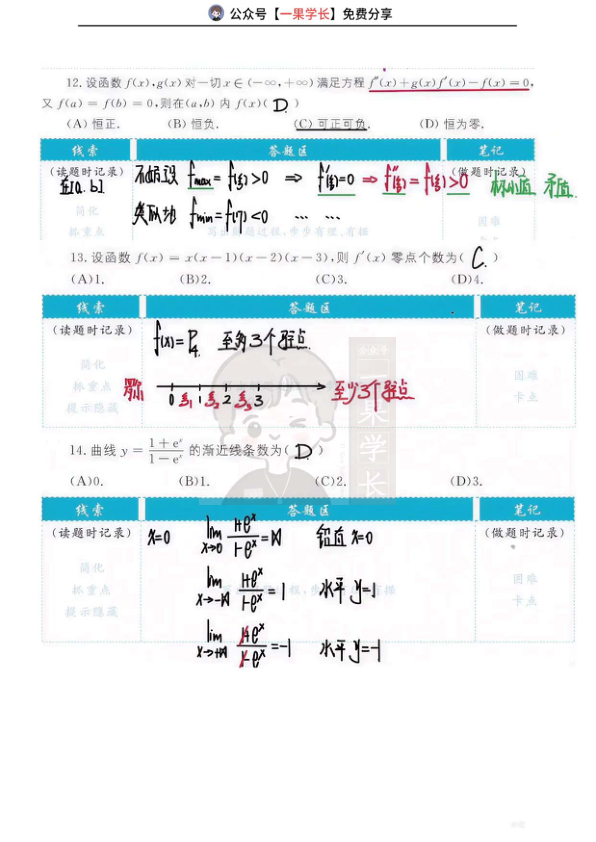 公众号【一果学长】免费分享
12. 设函数 f(x),g(x) 对一切 x∈(−∞,+∞) 满足方程 f″(x)+g(x)f′(x)−f(x)=0,
又 f(a) = f(b) = 0,则在(a,b) 内 f(x)( D )
(A) 恒正. (B) 恒负. (C) 可正可负. (D) 恒为零.
线索 答题区 笔记
(读题时记录) 不妨设 fmax = f(ξ)>0 ⇒ f′(ξ)=0 ⇒ f″(ξ) = f(ξ)>0 (做题时记录)
在[a.b] 极小值 矛盾.
简化
抓重点
类似地 fmin=f(η)<0 … …
写出解题过程,步步有理,有据
困难
13. 设函数 f(x) = x(x−1)(x−2)(x−3),则 f′(x) 零点个数为( C. )
(A)1. (B)2. (C)3. (D)4.
线索 答题区 笔记
(读题时记录) f(x)=P4 至多3个驻点 (做题时记录)
简化
抓重点
提示隐藏
罗尔 0 ξ1 1 ξ2 2 ξ3 3 至少3个驻点
困难
卡点
公众号
一果学长
14. 曲线 y = (1+eˣ)/(1−eˣ) 的渐近线条数为( D )
(A)0. (B)1. (C)2. (D)3.
线索 答题区 笔记
(读题时记录) x=0 lim x→0 (1+eˣ)/(1−eˣ) = ∞ 铅直 x=0 (做题时记录)
简化
抓重点
提示隐藏
lim x→−∞ (1+eˣ)/(1−eˣ) = 1 水平 y=1
困难
卡点
lim x→+∞ (1+eˣ)/(1−eˣ) = −1 水平 y=−1